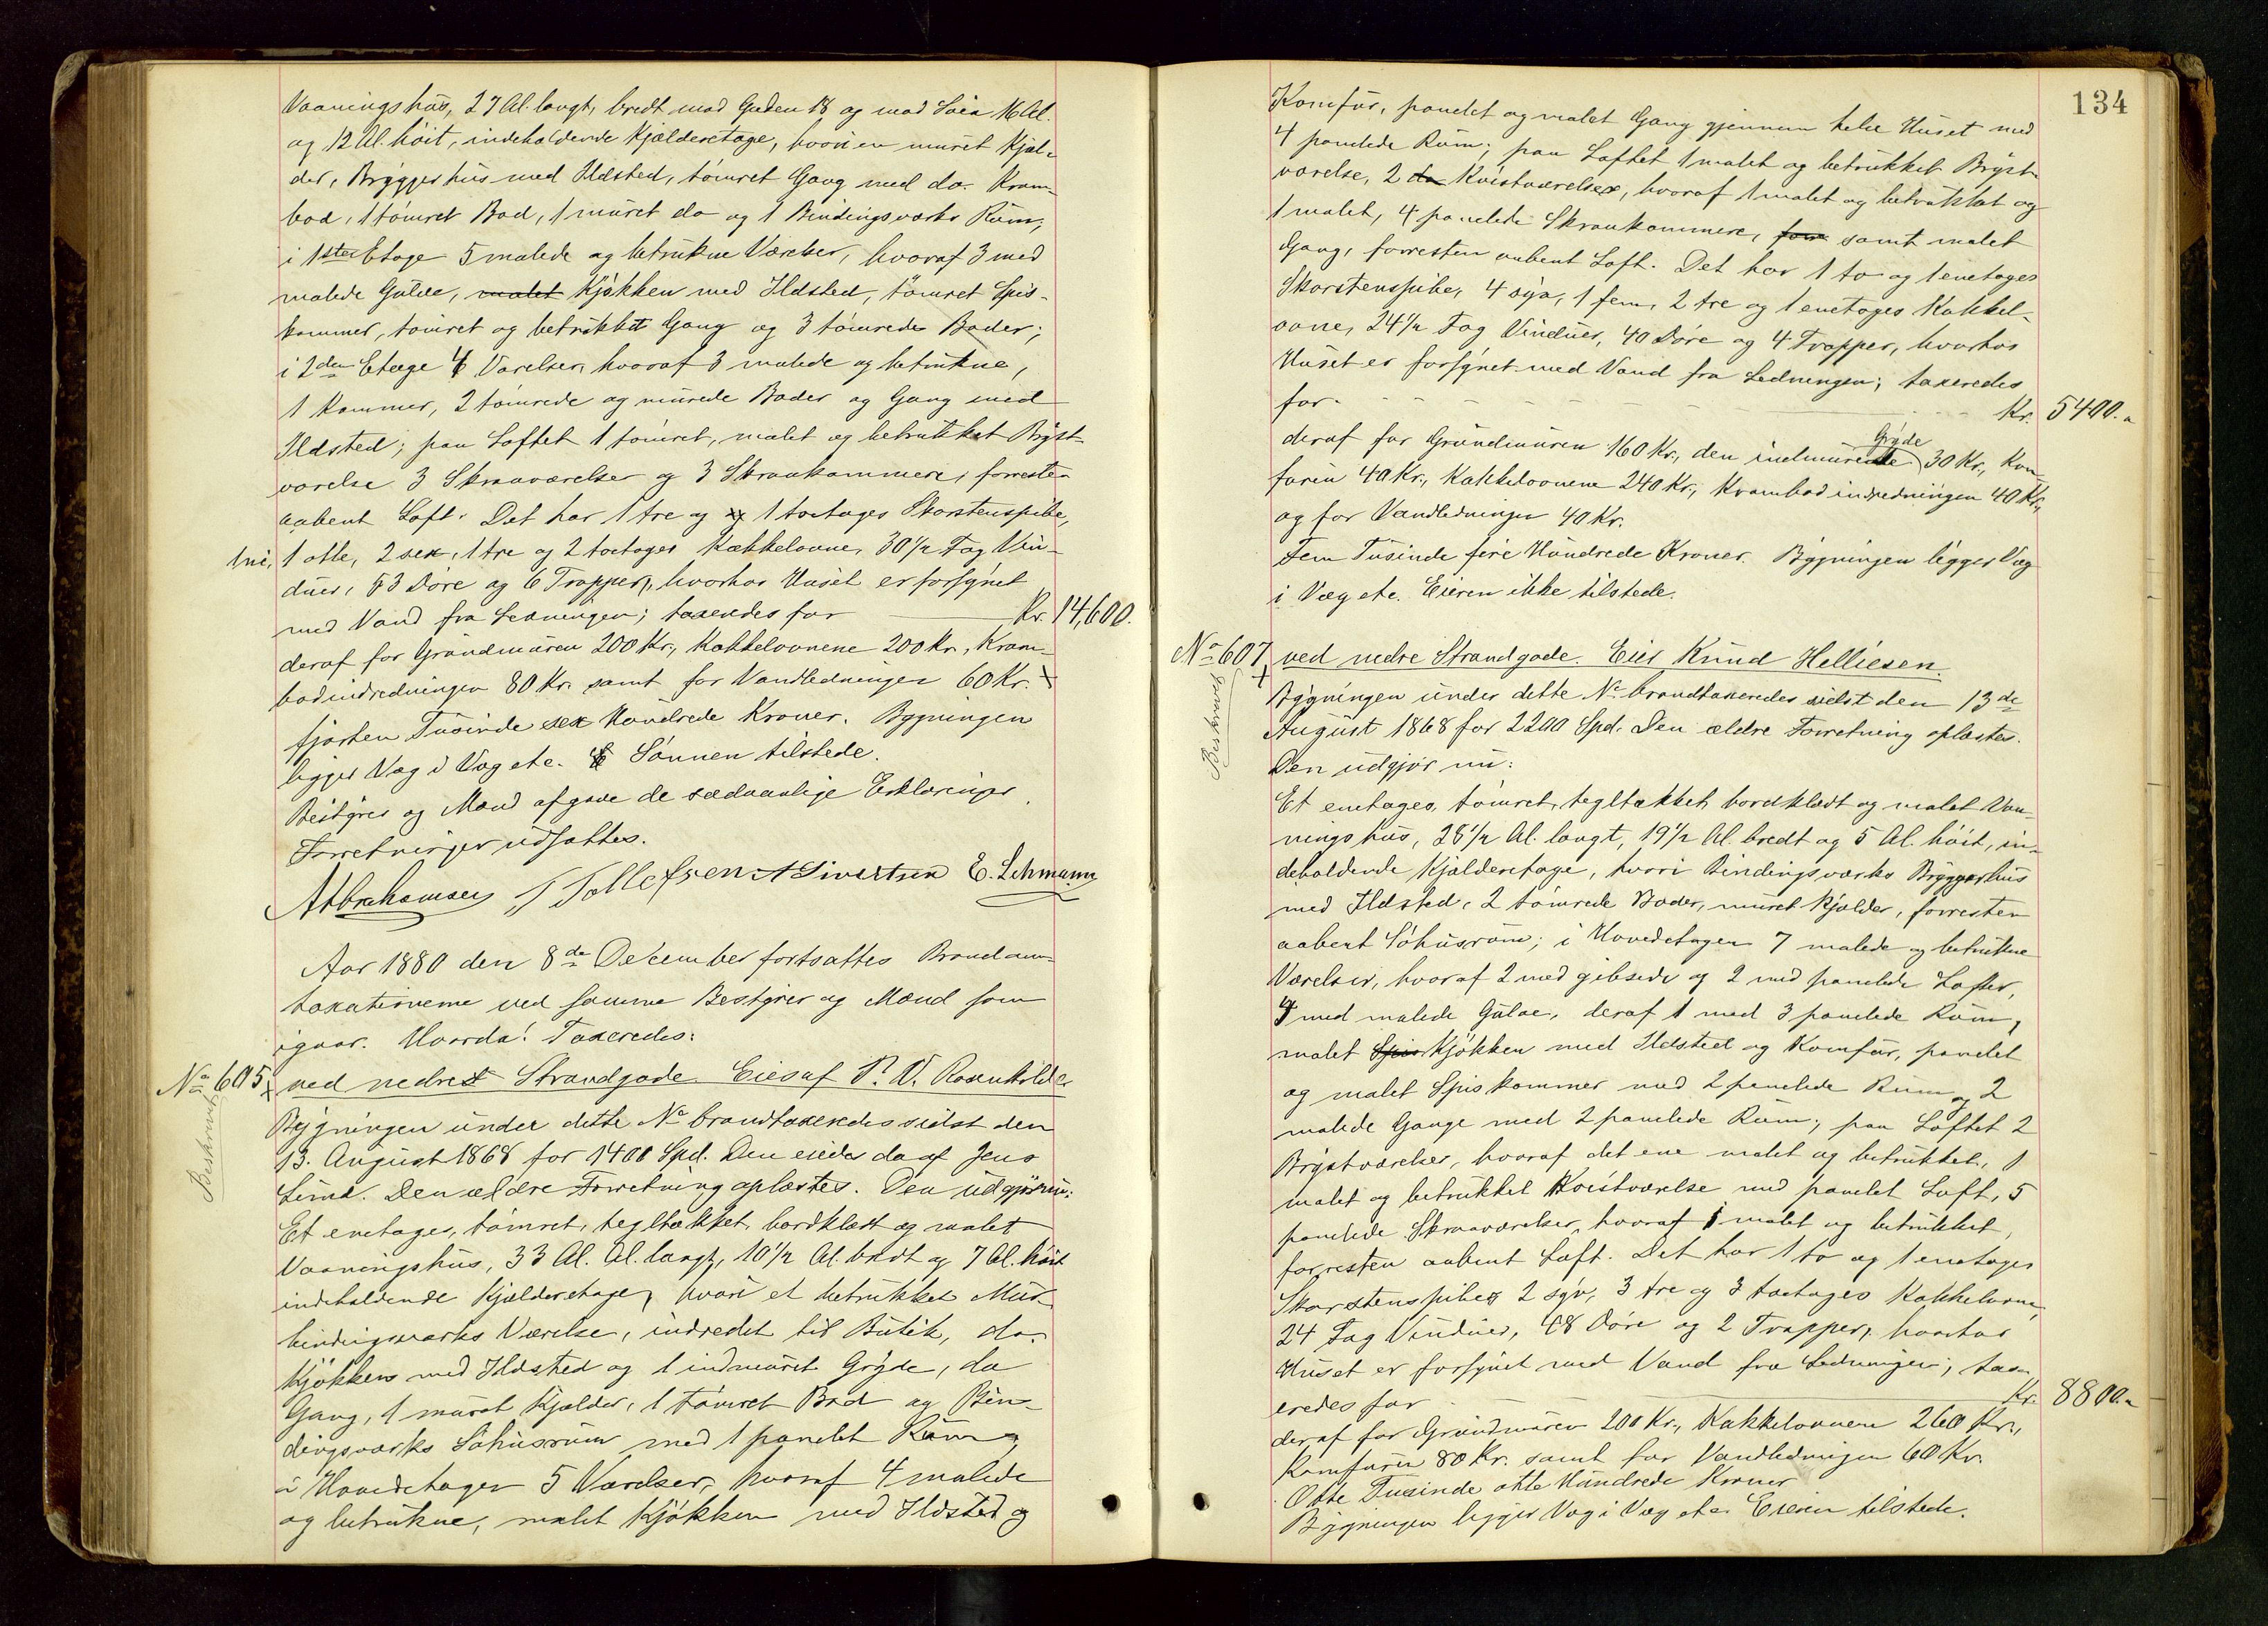 Vaaningshus, 27 Al. langt, bredt mod Gaden 18 og mod Søen 16 Al.
og 12 Al. høit, indeholdende Kjælderetage, hvori en muret Kjæl-
der, Bryggerhus med Ildsted, tømret Gang med do. Kram-
bod, 1 tømret Bod, 1 muret do og 1 Bindingsværks Rum;
i 1ste Etage 5 malede og betrukne Værelser, hvoraf 3 med
malede Gulve, malet Kjøkken med Ildsted, tømret Spis-
kammer, tømret og betrukket Gang og 3 tømrede Boder;
i 2den Etage 4 Værelser, hvoraf 3 malede og betrukne,
1 Kammer, 2 tømrede og murede Boder og Gang med
Ildsted; paa Loftet 1 tømret, malet og betrukket Bryst-
værelse 3 Skraaværelser og 3 Skraakammere, forresten
aabent Loft. Det har 1 tre og 1 toetages Skorstenspibe,
1 ni, 1 otte, 2 sex, 1 tre og 2 toetages Kakkelovne, 30 1/2 Fag Vin-
duer, 53 Døre og 6 Trapper, hvorhos Huset er forsynet
med Vand fra Ledningen; taxeredes for Kr. 14,600.
deraf for Grundmuren 200 Kr., Kakkelovnene 200 Kr., Kram-
bodindredningen 80 Kr. samt for Vandledningen 60 Kr.
fjorten Tusinde sex Hundrede Kroner. Bygningen
ligger Væg i Væg etc. Sønnen tilstede.
Bestyrer og Mænd afgave de sædvanlige Erklæringer.
Forretningen udsattes.
A Abrahamsen T Tollefsen A Sivertsen E. Lehmann
Aar 1880 den 8de December fortsattes Brandom-
taxationerne ved samme Bestyrer og Mænd som
igaar. Hvorda! Taxeredes:
No 605 ved nedre Strandgade. Eies af P. V. Rosenkilde
Beskrevet
Bygningen under dette No brandtaxeredes sidst den
13. August 1868 for 1400 Spd. Den eiedes da af Jens
Lima. Den ældre Forretning oplæstes. Den udgjør nu:
Et enetages, tømret, tegltækket, bordklædt og malet
Vaaningshus, 33 Al. Al. langt, 10 1/2 Al. bredt og 7 Al. høit
indeholdende Kjælderetage, hvori et betrukket Mur-
bindingsværks Værelse, indredet til Butik, do.
Kjøkken med Ildsted og 1 indmuret Gryde, do
Gang, 1 muret Kjælder, 1 tømret Bod og Bin-
dingsværks Søhusrum med 1 panelet Rum,
i Hovedetagen 5 Værelser, hvoraf 4 malede
og betrukne, malet Kjøkken med Ildsted og
134
Komfur, panelet og malet Gang gjennem hele Huset med
4 panelede Rum; paa Loftet 1 malet og betrukket Bryst-
værelse, 2 do Kvistværelser, hvoraf 1 malet og betrukket og
1 malet, 4 panelede Skraakammere, samt malet
Gang, forresten aabent Loft. Det har 1 to og 1 enetages
Skorstenspibe, 4 syv, 1 fem, 2 tre og 1 enetages Kakkel-
ovne, 24 1/2 Fag Vinduer, 40 Døre og 4 Trapper, hvorhos
Huset er forsynet med Vand fra Ledningen; taxeredes
for Kr. 5400.
deraf for Grundmuren 160 Kr., den indmurede Gryde 30 Kr., Kom-
furen 40 Kr., Kakkelovnene 240 Kr., Krambodindredningen 40 Kr.,
og for Vandledningen 40 Kr.
Fem Tusinde fire Hundrede Kroner. Bygningen ligger Væg
i Væg etc. Eieren ikke tilstede.
No 607 ved nedre Strandgade. Eier Knud Helliesen.
Beskrevet
Bygningen under dette No brandtaxeredes sidst den 13de
August 1868 for 2200 Spd. Den ældre Forretning oplæstes.
Den udgjør nu:
Et enetages, tømret, tegltækket, bordklædt og malet Vaa-
ningshus, 28 1/2 Al. langt, 19 1/2 Al. bredt og 5 Al. høit, in-
deholdende Kjælderetage, hvori Bindingsværks Bryggerhus
med Ildsted, 2 tømrede Boder, muret Kjælder, forresten
aabent Søhusrum; i Hovedetagen 7 malede og betrukne
Værelser, hvoraf 2 med gibsede og 2 med panelede Lofter,
4 med malede Gulve, deraf 1 med 3 panelede Rum,
malet Spis Kjøkken med Ildsted og Komfur, panelet
og malet Spiskammer med 2 panelede Rum og 2
malede Gange med 2 panelede Rum; paa Loftet 2
Brystværelser, hvoraf det ene malet og betrukket, 1
malet og betrukket Kvistværelse med panelet Loft, 5
panelede Skraaværelser, hvoraf 1 malet og betrukket,
forresten aabent Loft. Det har 1 to og 1 enetages
Skorstenspibe, 2 syv, 3 tre og 3 toetages Kakkelovne,
24 Fag Vinduer, 48 Døre og 2 Trapper, hvorhos
Huset er forsynet med Vand fra Ledningen; tax-
eredes for Kr. 8800.
deraf for Grundmuren 200 Kr., Kakkelovnene 260 Kr.,
Komfuren 80 Kr. samt for Vandledningen 60 Kr.
Otte Tusinde otte Hundrede Kroner
Bygningen ligger Væg i Væg etc. Eieren tilstede.